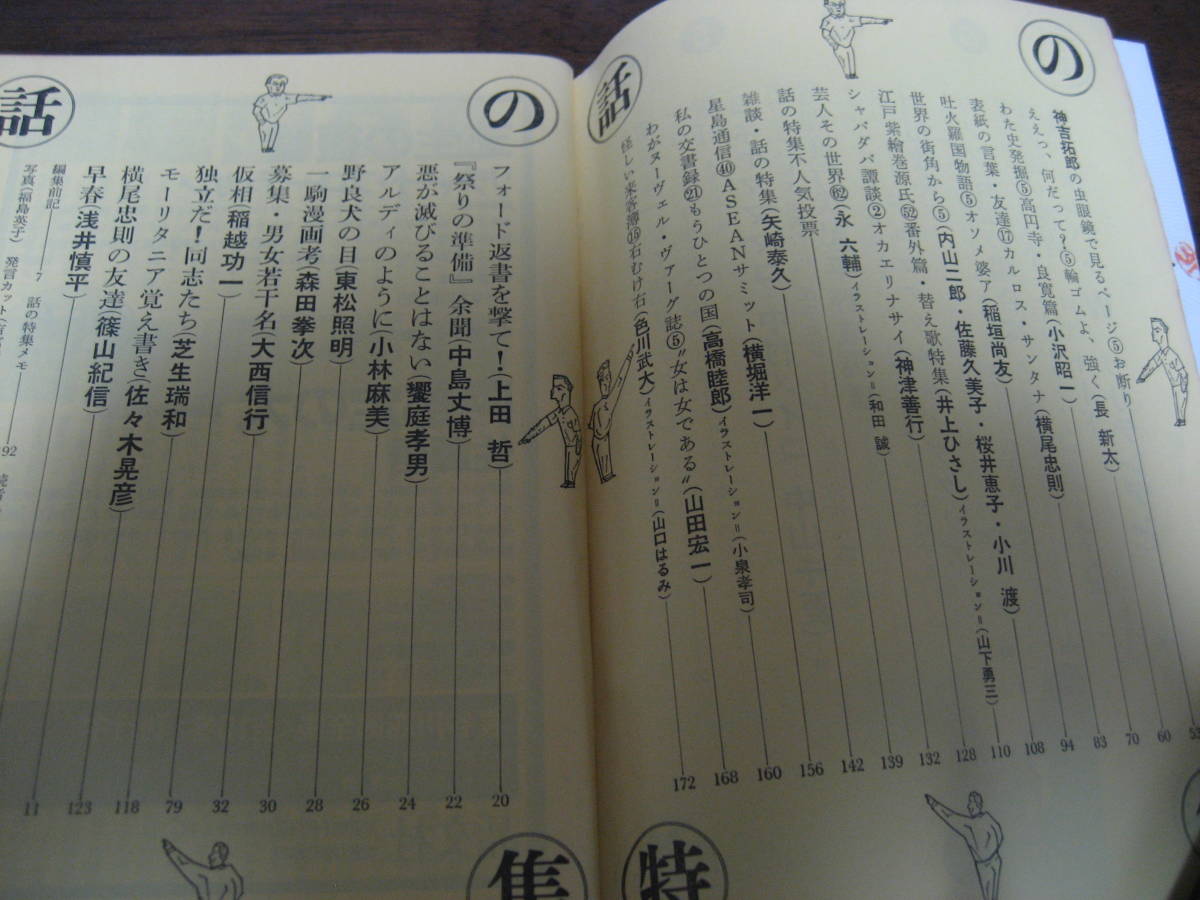 の
話
神吉拓郎の虫眼鏡で見るページ⑤お断り 53
ええっ、何だって？⑤輪ゴムよ、強く(長 新太) 60
わた史発掘⑤高円寺・良寛篇(小沢昭一) 70
妻紙の言葉・友達⑰カルロス・サンタナ(横尾忠則) 83
吐火羅国物語⑤オソメ婆ア(稲垣尚友) 94
世界の街角から⑤(内山二郎・佐藤久美子・桜井恵子・小川 渡) 108
江戸紫絵巻源氏52番外篇・替え歌特集(井上ひさし)イラストレーション＝(山下勇三) 110
シャバダバ譚談②オカエリナサイ(神津善行) 128
芸人その世界62(永 六輔)イラストレーション＝(和田 誠) 132
話の特集不人気投票 139
雑談・話の特集(矢崎泰久) 142
星島通信㊵ASEANサミット(横堀洋一) 156
私の交書録㉑もうひとつの国(高橋睦郎)イラストレーション＝(小泉孝司) 160
わがヌーヴェル・ヴァーグ誌⑤〝女は女である〟(山田宏一) 168
怪しい来客簿⑮右むけ右(色川武大)イラストレーション＝(山口はるみ) 172
特
の
話
フォード返書を撃て！(上田 哲) 20
『祭りの準備』余聞(中島丈博) 22
悪が滅びることはない(饗庭孝男) 24
アルディのように(小林麻美) 26
野良犬の目(東松照明) 28
一駒漫画考(森田拳次) 30
募集・男女若干名(大西信行) 32
仮相(稲越功一) 79
独立だ！同志たち(芝生瑞和) 118
モーリタニア覚え書き(佐々木晃彦) 123
横尾忠則の友達(篠山紀信) 11
早春(浅井慎平)
編集前記 7
話の特集メモ 192
写真(福島英子)
発言カット
集